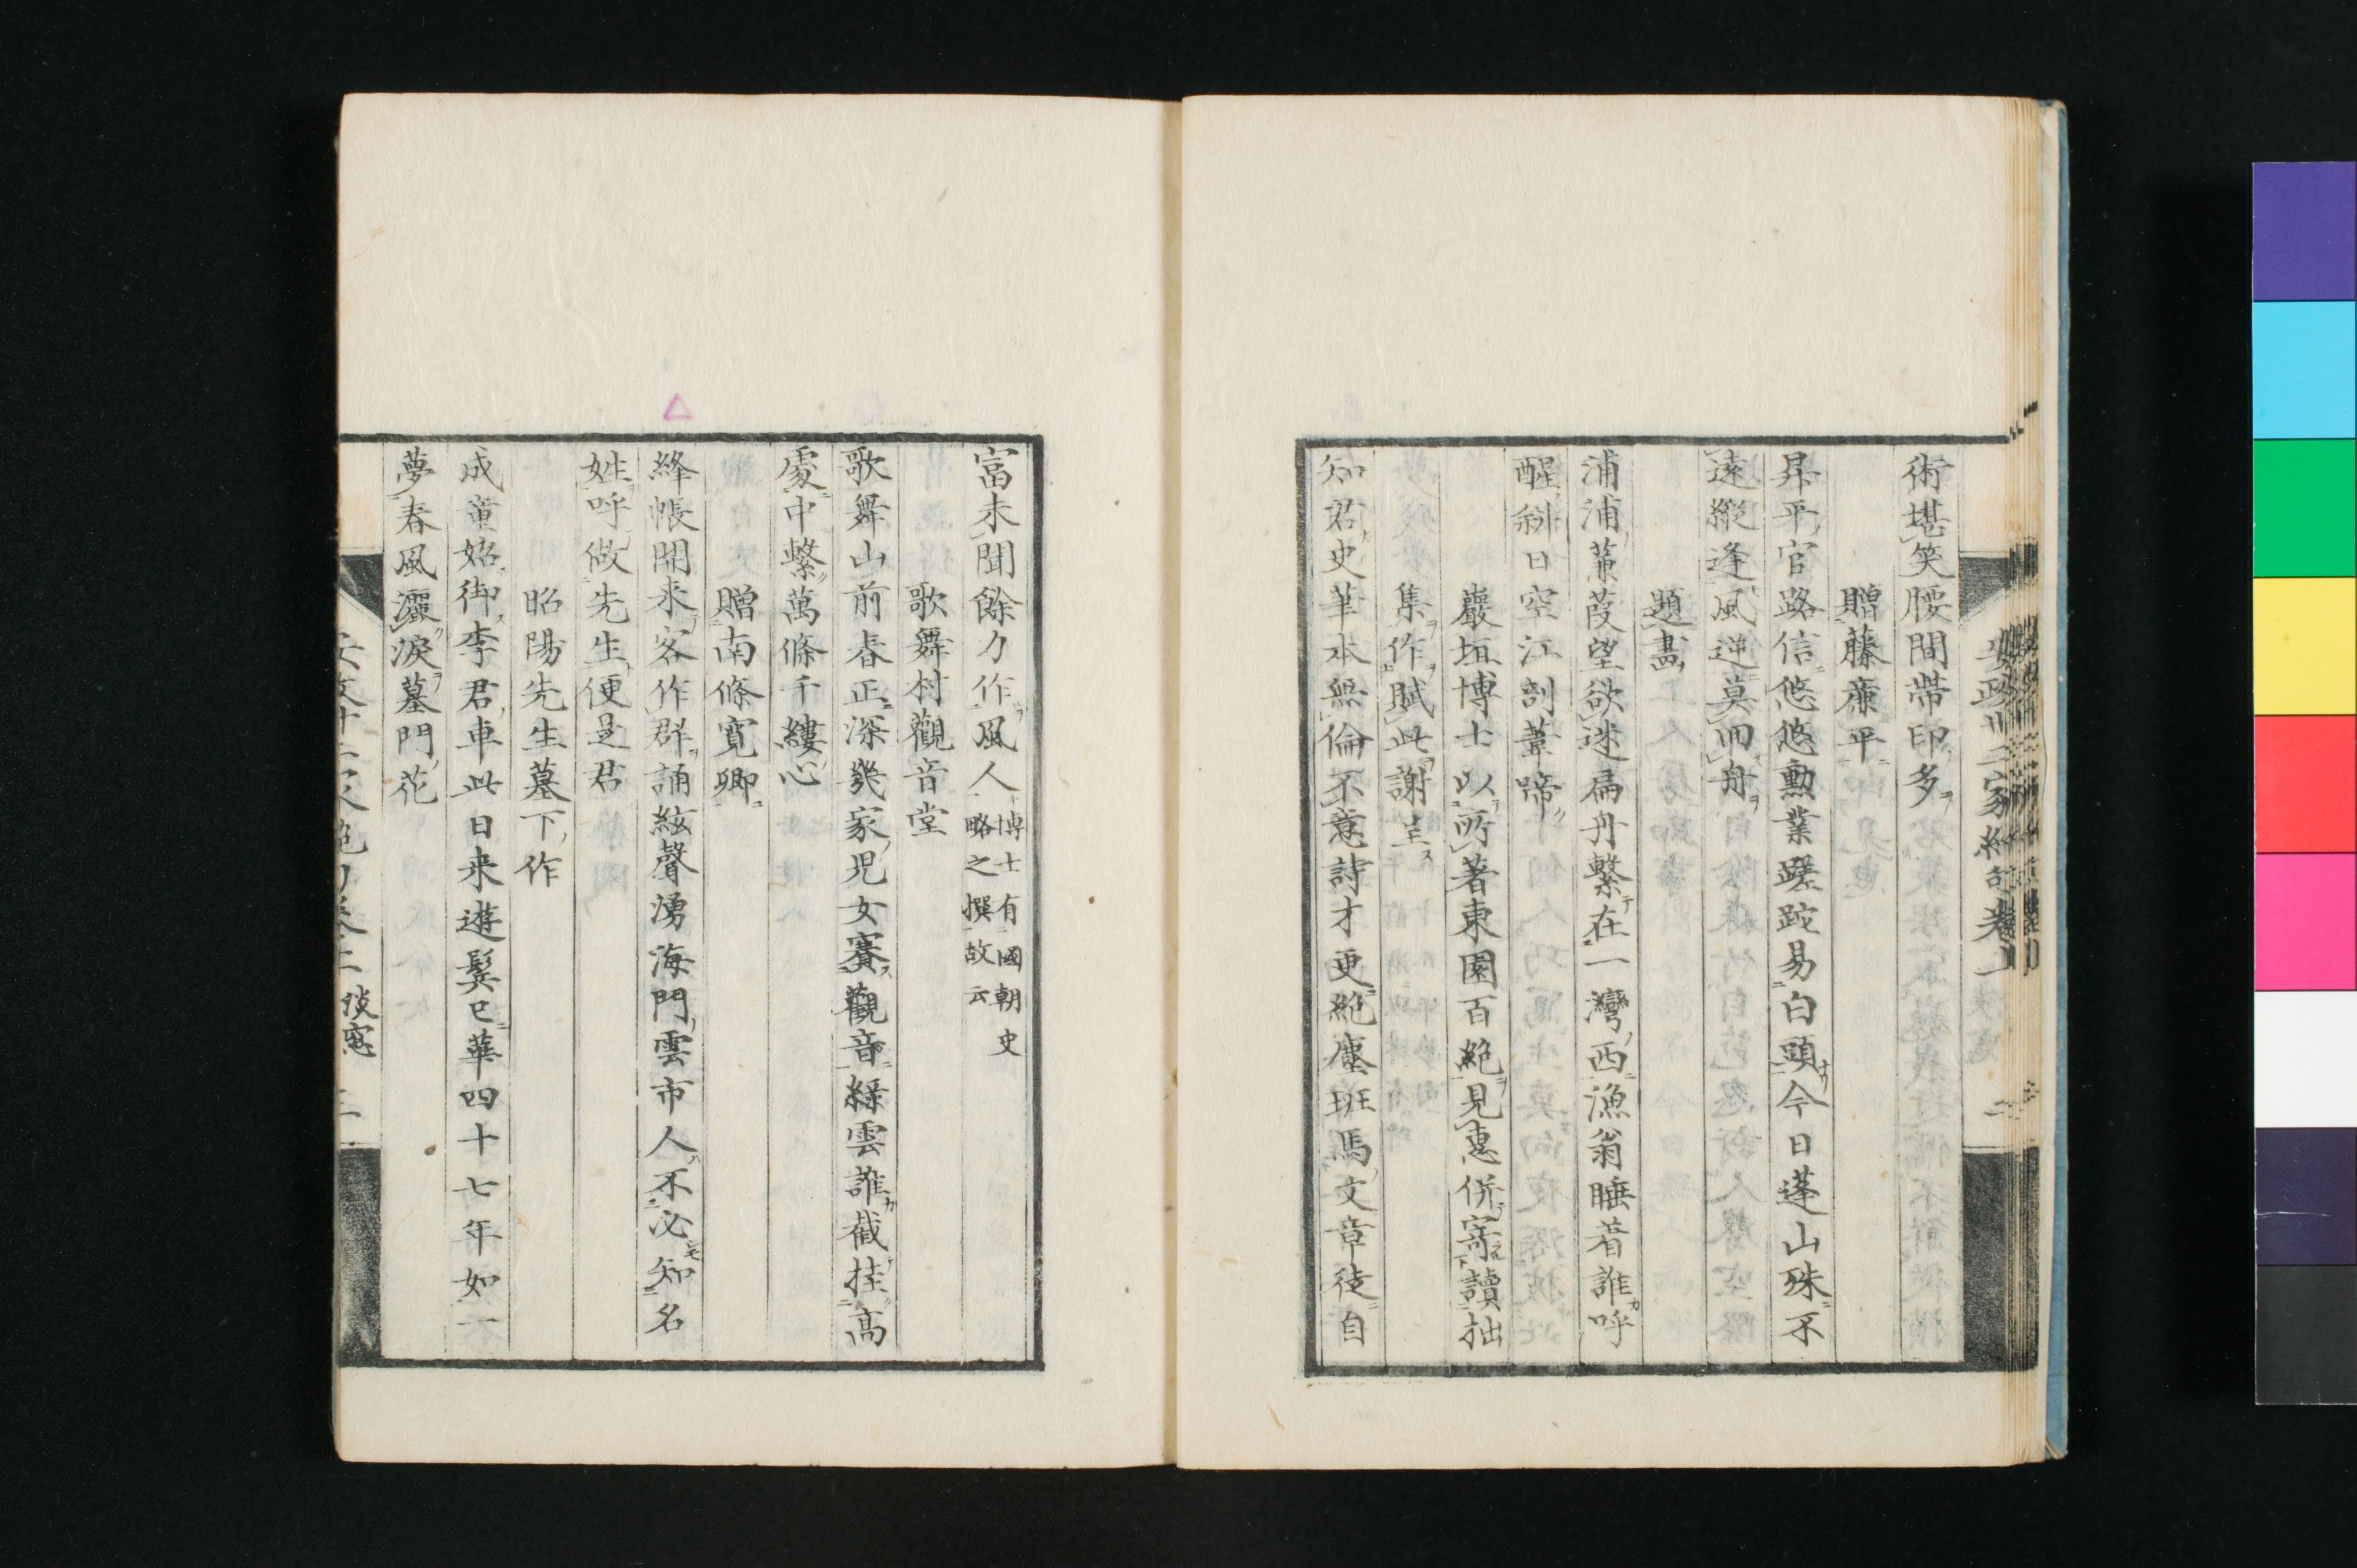 術堪笑腰間帶印多
贈藤廉平
昇平官路信悠悠勲業蹉跎易白頭今日蓬山殊不
遠縱逢風逆莫囘舟
題畵
浦浦蒹葭望欲迷扁舟繋在一灣西漁翁睡着誰呼
醒斜日空江剖葦啼
巖垣博士以所著東園百絶見惠併寄讀拙
集作賦此謝呈
知君史筆本無倫不意詩才更絶塵班馬文章徒自
富未聞餘力作風人
博士有國朝史
略之撰故云
歌舞村觀音堂
歌舞山前春正深幾家児女賽觀音緑雲誰截挂高
處中繋萬條千縷心
贈南條寛卿
絳帳開来客作群誦絃聲湧海門雲市人不必知名
姓呼做先生便是君
昭陽先生墓下作
成童始御李君車此日来遊鬂已華四十七年如一
夢春風灑淚墓門花